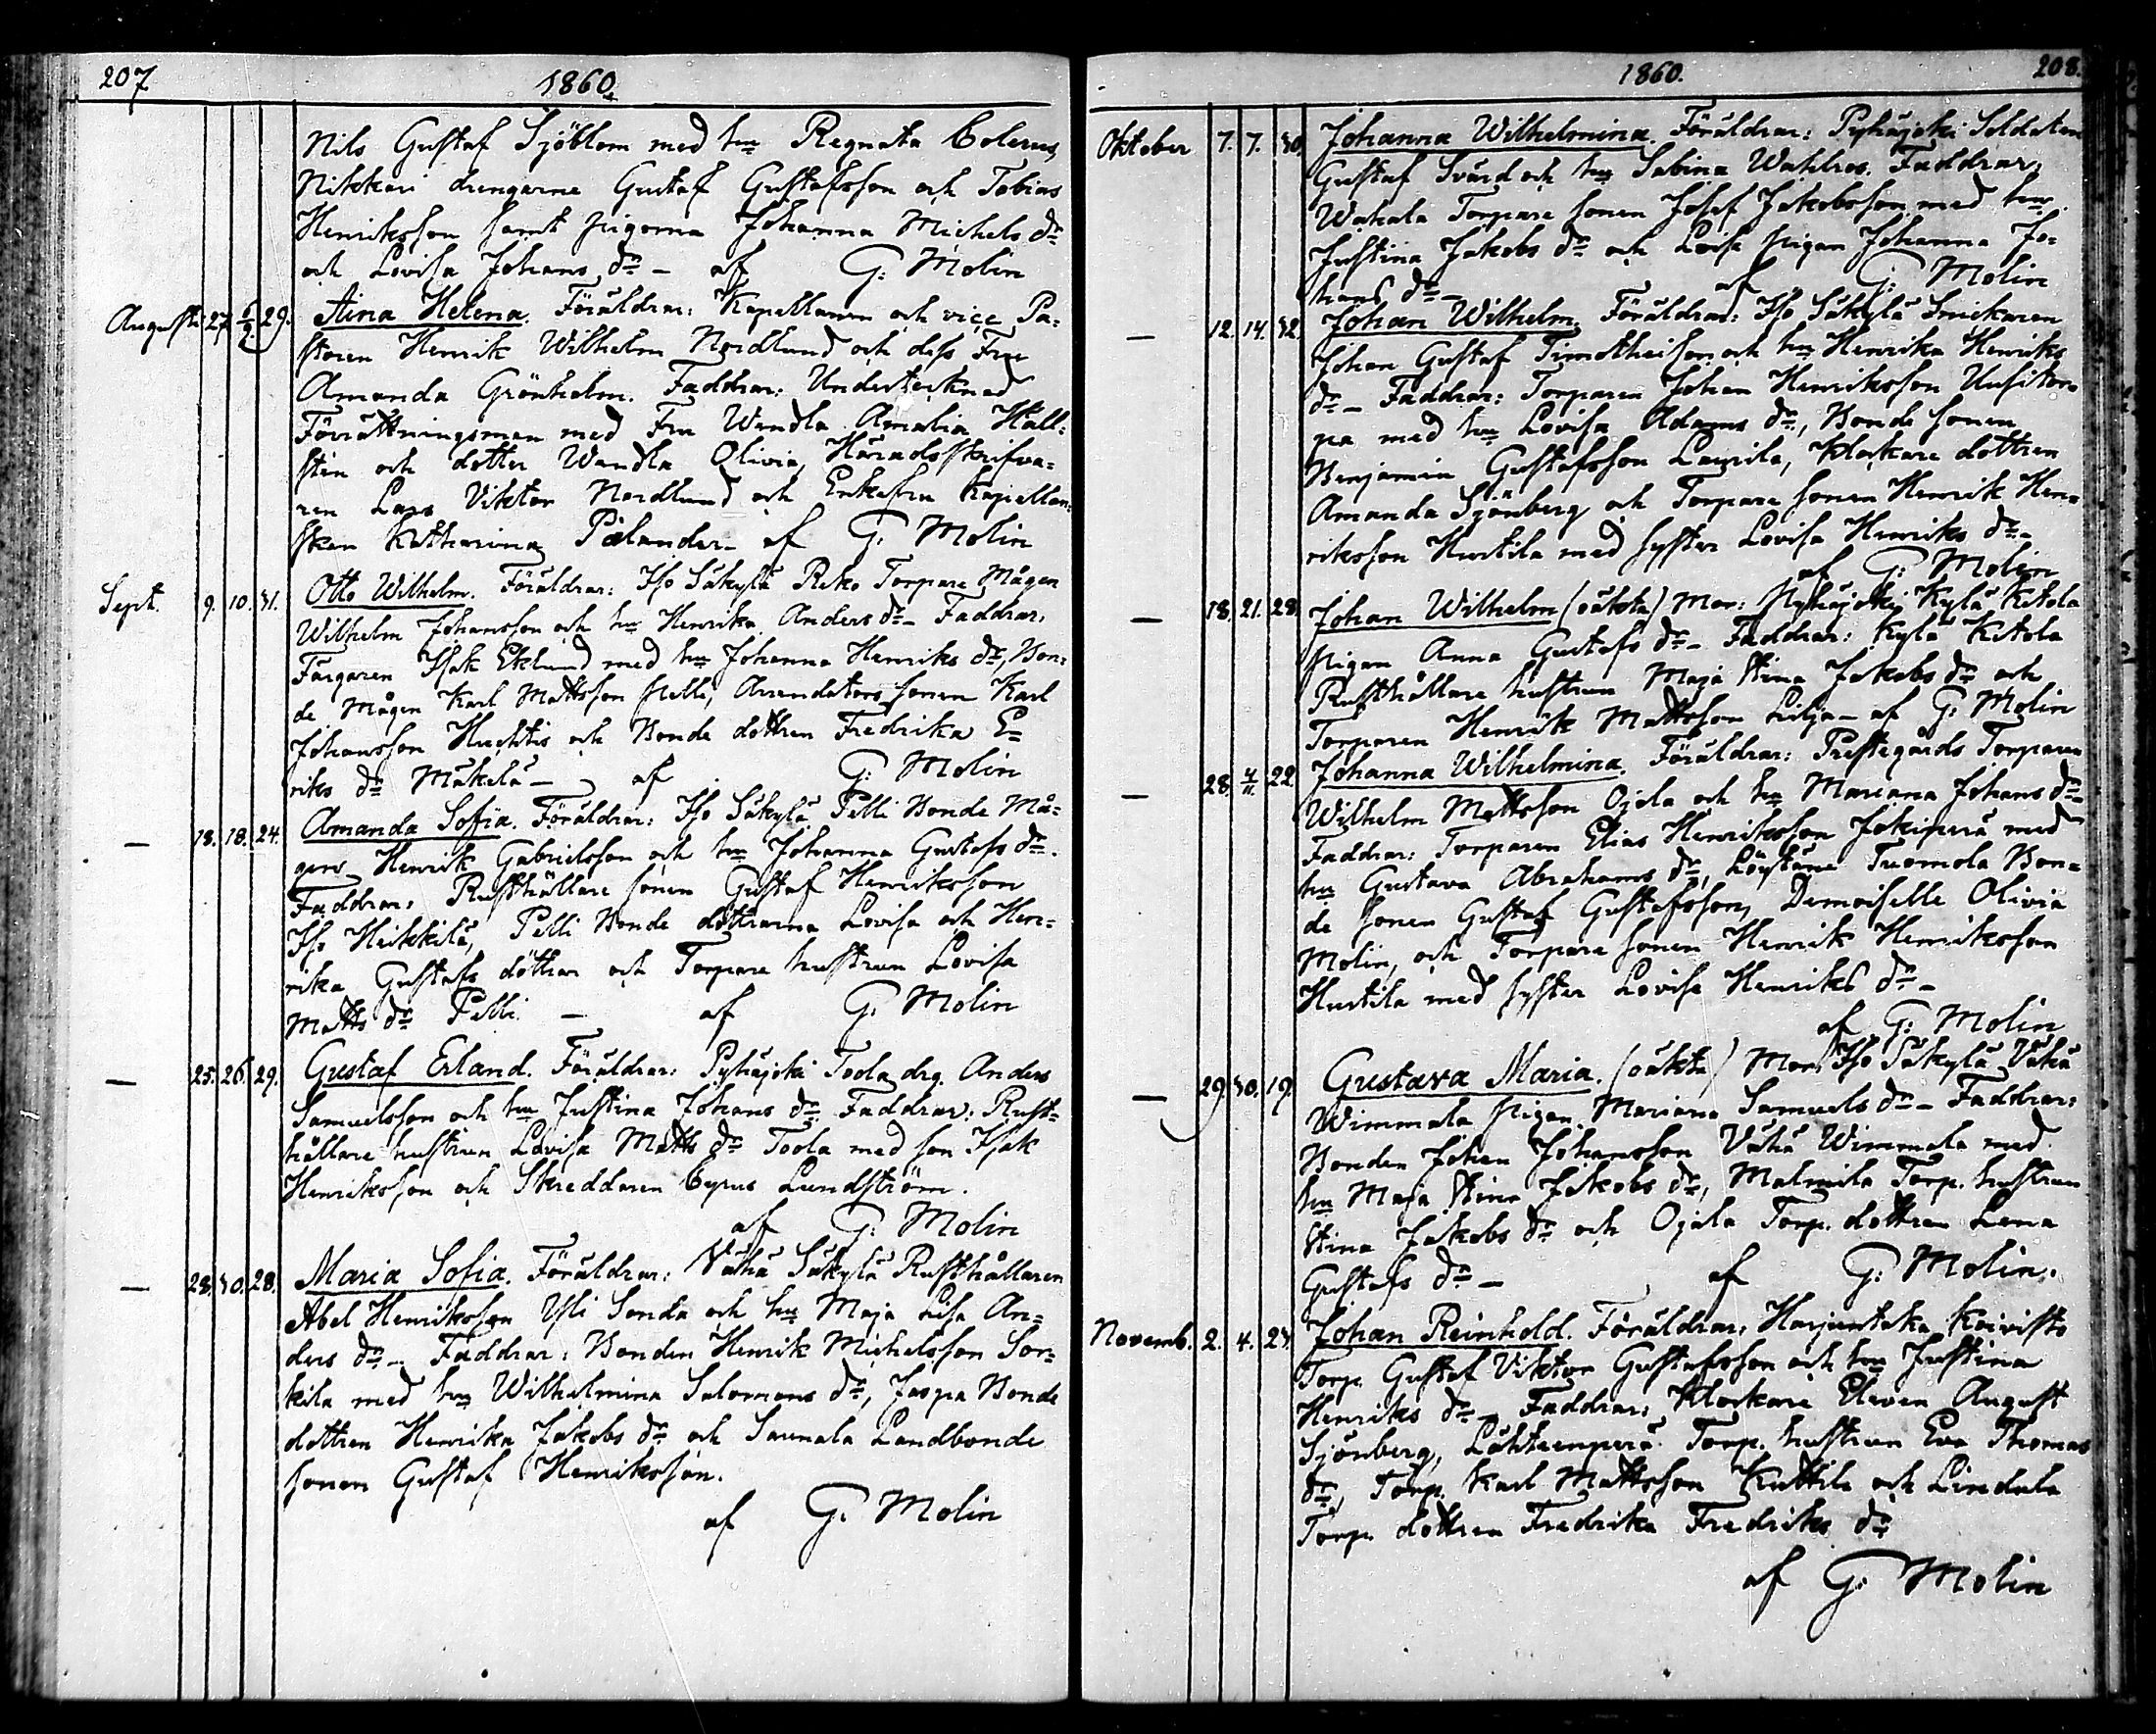 207
1860.
Nils Gustaf Sjöblom med hu Regnata Colerus,
Nikkari drengarne Gustaf Gustafsson och Tobias
Henriksson samt pigorna Johanna Michels dr
och Lovisa Johans dr – af G: Molin
Augusti 27. 6/9. 29. Aina Helena. Föräldrar: Kapellanen och vice Pa-
storen Henrik Wilhelm Nordlund och dess Fru
Amanda Grönholm. Faddrar: Undertecknad
Förrättningsman med Fru Wendla Amalia Häll-
stén och dotter Wandla Olivia, Häradsskrifva-
ren Lars Viktor Nordlund och Enkefru Kapellan-
skan Katharina Polander – af G. Molin
Sept. 9. 10. 31. Otto Wilhelm. Föräldrar: Iso Säkylä Reko Torpare Mågen
Wilhelm Johansson och hu Henrika Anders dr – Faddrar:
Färgaren Isak Eklund med hu Johanna Henriks dr, Bon-
de Mågen Karl Mattsson Pelli, Arrendators sonen Karl
Johansson Huhtis och Bonde dottren Fredrika E-
riks dr Mäkelä – af G: Molin
– 18. 18. 24. Amanda Sofia. Föräldrar: Iso Säkylä Pelli Bonde Må-
gen Henrik Gabrielsson och hu Johanna Gustafs dr.
Faddrar: Rusthållare sonen Gustaf Henriksson
Iso Heikkilä, Pelli Bonde döttrarna Lovisa och Hen-
rika Gustafs döttrar och Torpare hustrun Lovisa
Matts dr Pelli. – af G. Molin
– 25. 26. 29. Gustaf Erland. Föräldrar: Pyhäjoki Toola drg. Anders
Samuelsson och hu Justina Johans dr. Faddrar: Rust-
hållare hustrun Lovisa Matts dr Toola med son Isak
Henriksson och Skreddaren Cyrus Lundström.
af G: Molin
– 28. 30. 28. Maria Sofia. Föräldrar: Vähä Säkylä Rusthållaren
Abel Henriksson Yli Sonda och hu Maja Lisa An-
ders dr – Faddrar: Bonden Henrik Michelsson Sor-
kila med hu Wilhelmina Salomons dr, Jaspa Bonde
dottren Henrika Jakobs dr och Saunala Landbonde
sonen Gustaf Henriksson.
af G. Molin
1860.
208.
Oktober 7. 7. 30. Johanna Wilhelmina. Föräldrar: Pyhäjoki Soldaten
Gustaf Svärd och hu Sabina Wahlros. Faddrar:
Wakala Torpare sonen Josef Jakobsson med hu
Justina Jakobs dr och Loisa pigan Johanna Jo-
hans dr – af G: Molin
– 12. 14. 32. Johan Wilhelm. Föräldrar: Iso Säkylä Snickaren
Johan Gustaf Timotheison och hu Henrika Henriks
dr – Faddrar: Torparen Johan Henriksson Uusitor-
pa med hu Lovisa Adams dr, Bonde sonen
Benjamin Gustafsson Laurila, Klockare dottren
Amanda Sjönberg och Torpare sonen Henrik Hen-
riksson Hurtila med syster Lovisa Henriks dr –
af G: Molin
– 18. 21. 28. Johan Wilhelm (oäkta) Mor: Pyhäjoki Kylä Kitola
pigan Anna Gustafs dr – Faddrar: Kylä Kitola
Rusthållare hustrun Maja Stina Jakobs dr och
Torparen Henrik Mattsson Lilja – af G. Molin
– 28. 4/11. 22. Johanna Wilhelmina. Föräldrar: Prestegårds Torparen
Wilhelm Mattsson Ojala och hu Mariana Johans dr –
Faddrar: Torparen Elias Henriksson Jokiperä med
hu Gustava Abrahams dr, Löytäne Tuomola Bon-
de sonen Gustaf Gustafsson, Demoiselle Olivia
Molin, och Torpare sonen Henrik Henriksson
Hurtila med syster Lovisa Henriks dr –
af G: Molin
– 29. 30. 19. Gustava Maria. (oäkta) Mor: Iso Säkylä Vähä
Wimmala pigan Mariana Samuels dr – Faddrar:
Bonden Johan Johansson Vähä Wimmala med
hu Maja Stina Jakobs dr, Malmila Torp. hustrun
Stina Jakobs dr och Ojala Torp. dottren Lena
Gustafs dr – af G: Molin.
Novemb. 2. 4. 23. Johan Reinhold. Föräldrar: Harjuntaka Koivisto
Torp. Gustaf Viktor Gustafsson och hu Justina
Henriks dr – Faddrar: Klockare Eleven August
Sjönberg, Lähteenperä Torp. hustrun Eva Thomas
dr, Torp. Karl Mattsson Kuttila och Lindala
Torp. dottren Fredrika Fredriks dr
af G: Molin